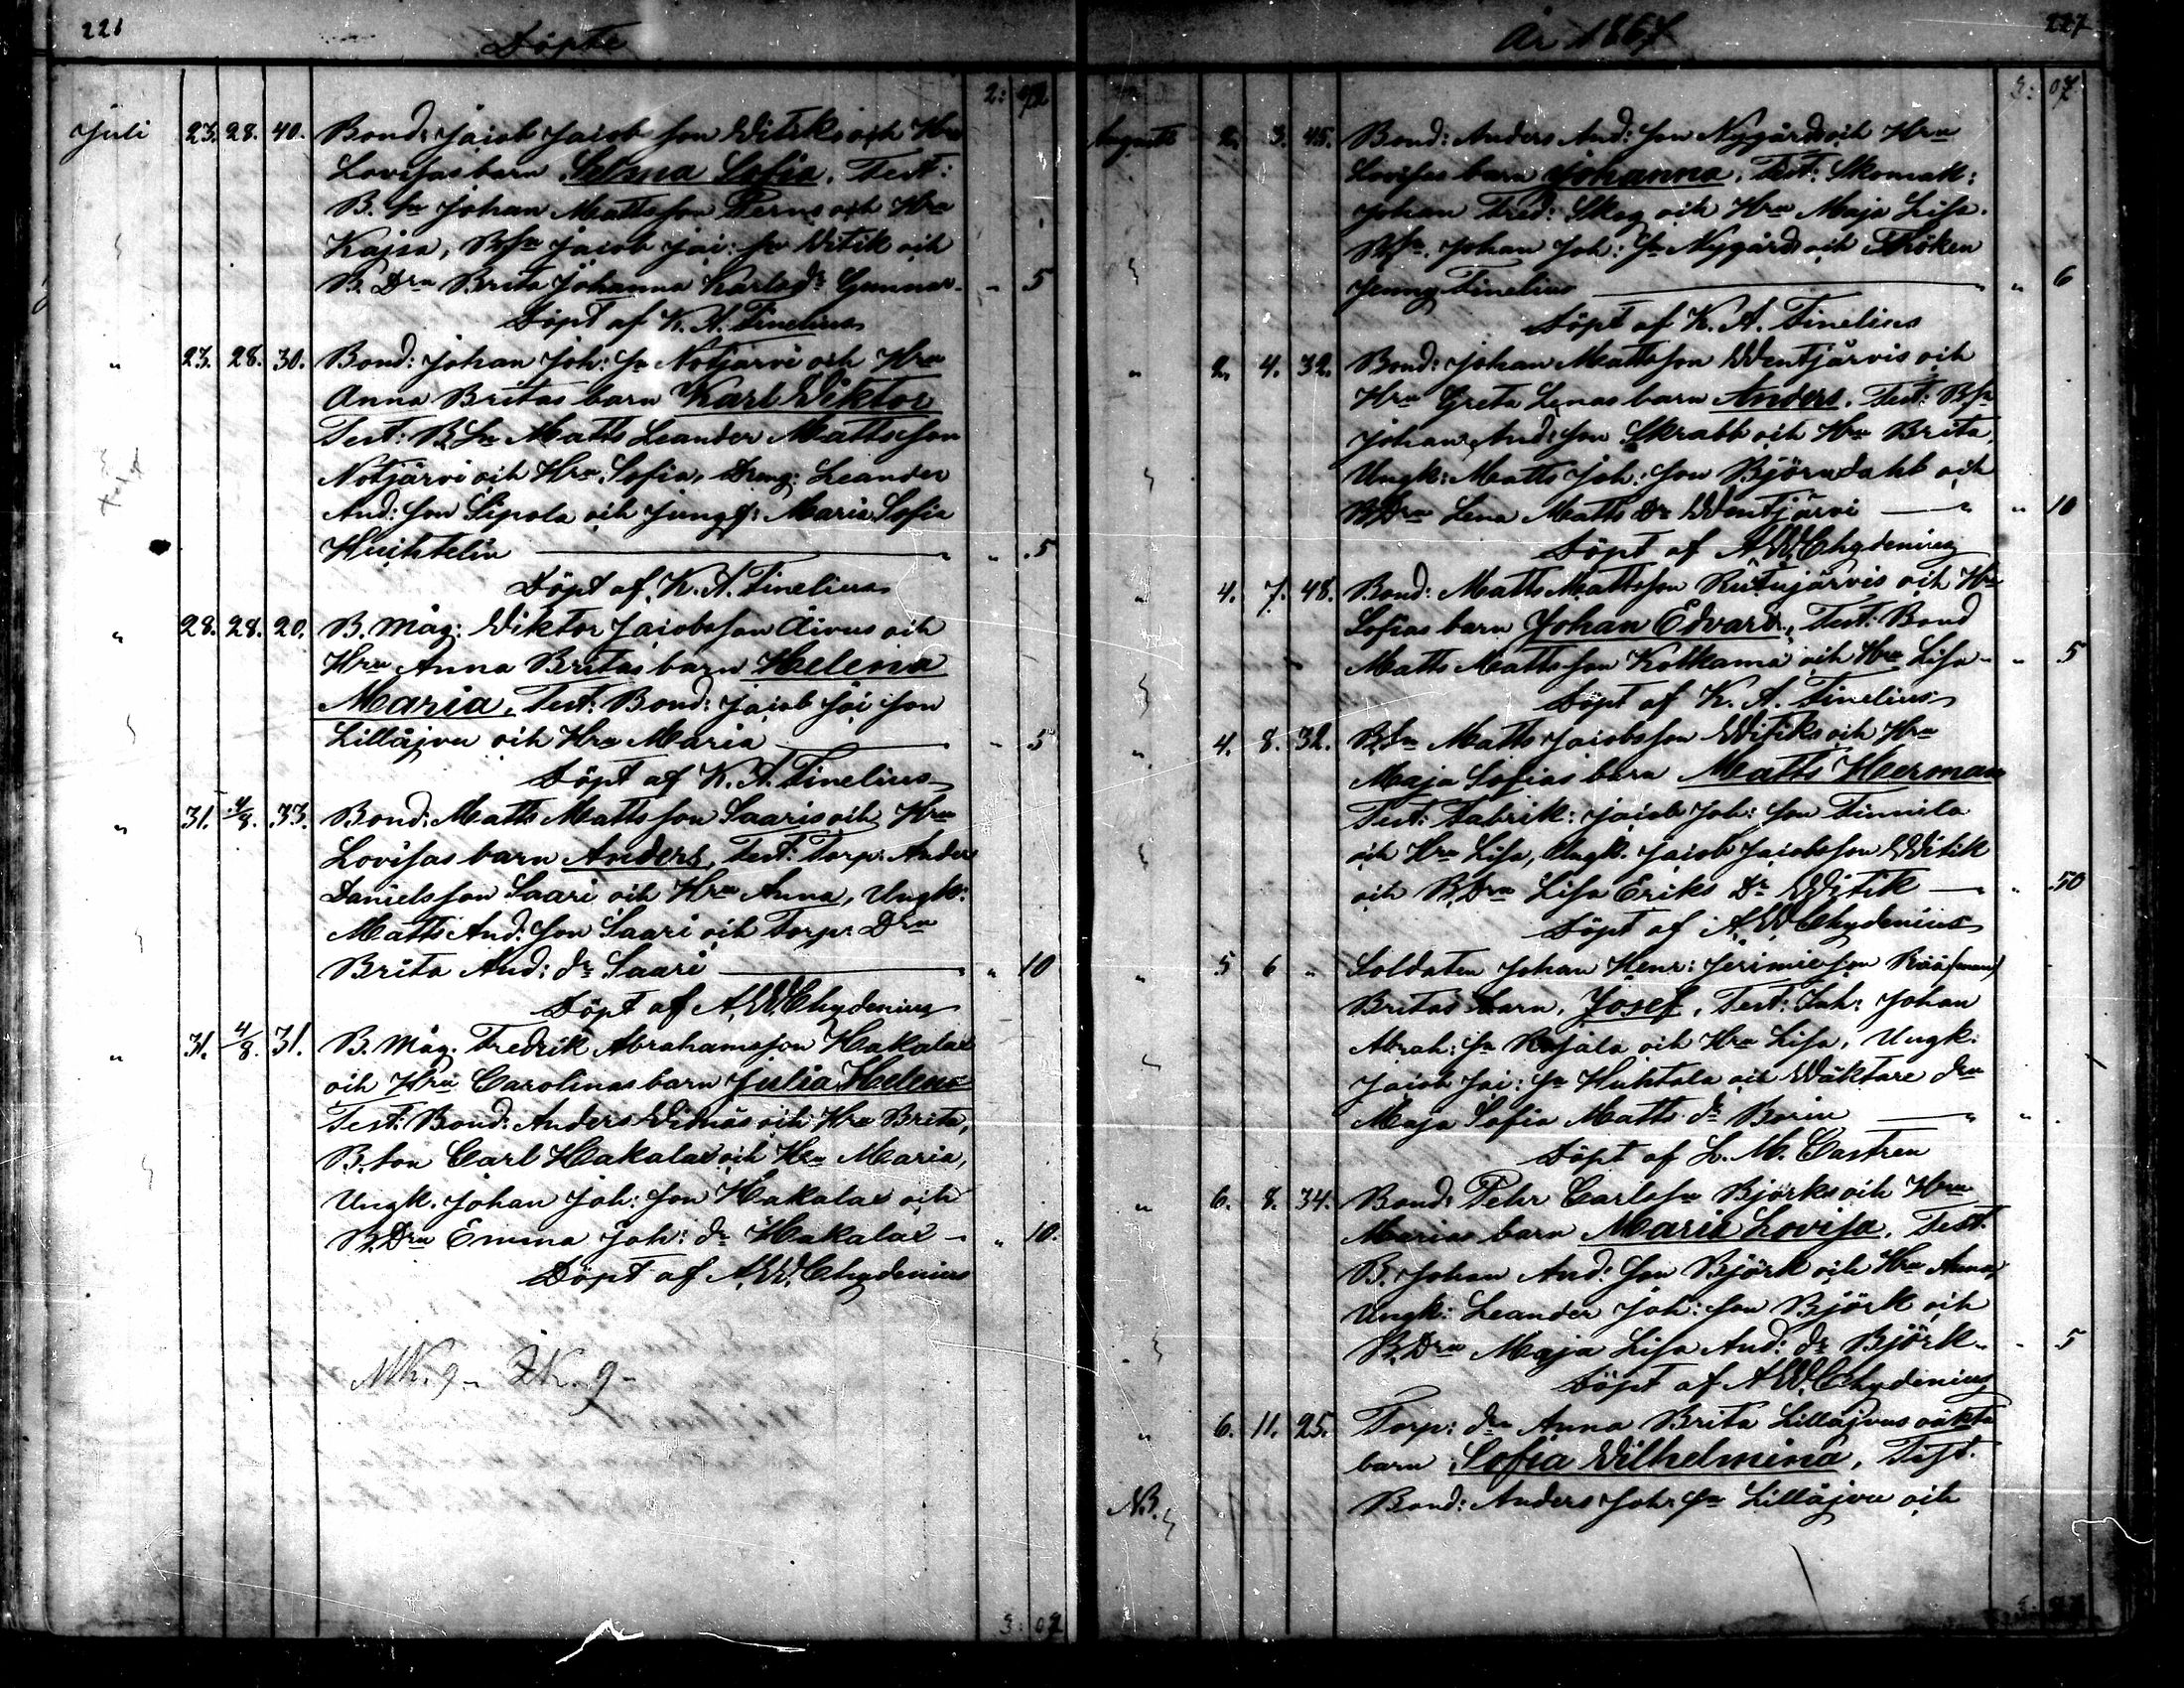 226
Döpte
2: 72
Juli 23. 28. 40. Bond: Jacob Jacobsson Witiks och Hru
Lovisas barn Selma Sofia. Test:
B. Sn Johan Mattsson Perns och Hru
Kajsa, B. Sn Jacob Jac: Sn Witik och
B. Dra Brita Johanna Karlsdr Gunnar - " 5
Döpt af K. A. Finelius
" 23. 28. 30. Bond: Johan Joh: Sn Notjärvi och Hru
Anna Britas barn Karl Wiktor
Test: B. Sn Matts Leander Mattsson
Notjärvi och Hru Sofia, Dreng: Leander
And: Son Sipola och Jungf: Maria Sofia
" " 5
Döpt af K. A. Finelius
" 28. 28. 20. B. Måg: Wiktor Jacobsson Åivus och
Hru Anna Britas barn Helena
Maria. Test: Bond: Jacob Jac son
Lillåjvu och Hru Maria " 5
Döpt af K. A. Finelius
" 31. 4/8. 33. Bond: Matts Mattsson Saaris och Hru
Lovisas barn Anders, Test: Torp: Anders
Danielsson Saari och Hru Anna, Ungk:
Matts And: Son Saari och Torp: Dra
Brita And: dr Saari " " 10
Döpt af A. W. Chydenius
" 31. 4/8. 31. B. Måg. Fredrik Abrahamsson Hakalax
och Hru Carolinas barn Julia Helena
Test: Bond: Anders Widnäs och Hru Brita,
B. Son Carl Hakalax och Hru Maria,
Ungk. Johan Joh: Son Hakalax och
B. Dra Emma Joh: dr Hakalax - " 10.
Döpt af A. W. Chydenius
MK. 9 - ZK. 9 -
3: 07
År 1867
227
3: 07
Augusti 2. 3. 45. Bond: Anders And: Son Nygårds och Hru
Lovisas barn Johanna. Test: Skomak:
Johan Fred: Skog och Hru Maja Lisa.
B. Sn. Johan Joh: Sn Nygård och Fröken
Jenny Finelius " " 6
Döpt af K. A. Finelius
" 2. 4. 32. Bond: Johan Mattsson Wentjärvis och
Hru Greta Lenas barn Anders. Test: B. Sn
Johan And: Son Skrabb och Hru Brita,
Ungk: Matts Joh: Son Björndahl och
B. Dra Lena Matts Dr Wentjärvi " " 10
Döpt af A. W. Chydenius
" 4. 7. 48. Bond: Matts Mattsson Rutujärvis och Hru
Sofias barn Johan Edvard, Test: Bond
Matts Mattsson Kolkama och Hru Lisa - " 5
Döpt af K. A. Finelius
" 4. 8. 32. B. Sn Matts Jacobsson Witiks och Hru
Maja Sofias barn Matts Herman
Test: Fabrik: Jacob Joh: Son Finnila
och Hru Lisa, Ungk. Jacob Jacobsson Witik
och B. Dra Lisa Eriks Dr Witik " " 50
Döpt af A. W. Chydenius
" 5 6 " Soldaten Johan Henr:
Britas barn, Josef, Test: Inh: Johan
Abrah: Sn Rajala och Hru Lisa, Ungk:
Jacob Jac: Sn Huhtala och Wäktare dra
Maja Sofia Matts dr Borin " "
Döpt af L. M. Castren
" 6. 8. 34. Bond: Pehr Carlsson Björks och Hru
Marias barn Maria Lovisa. Test.
B. Johan And: Son Björk och Hru Anna,
Ungk: Leander Joh: Son Björk och
B. Dra Maja Lisa And: dr Björk - " 5
Döpt af A. W. Chydenius
" 6. 11. 25. Torp: dra Anna Brita Lillåjvus oäkta
barn Sofia Wilhelmina, Test.
NB. Bond: Anders Joh: Sn Lillåjvu och